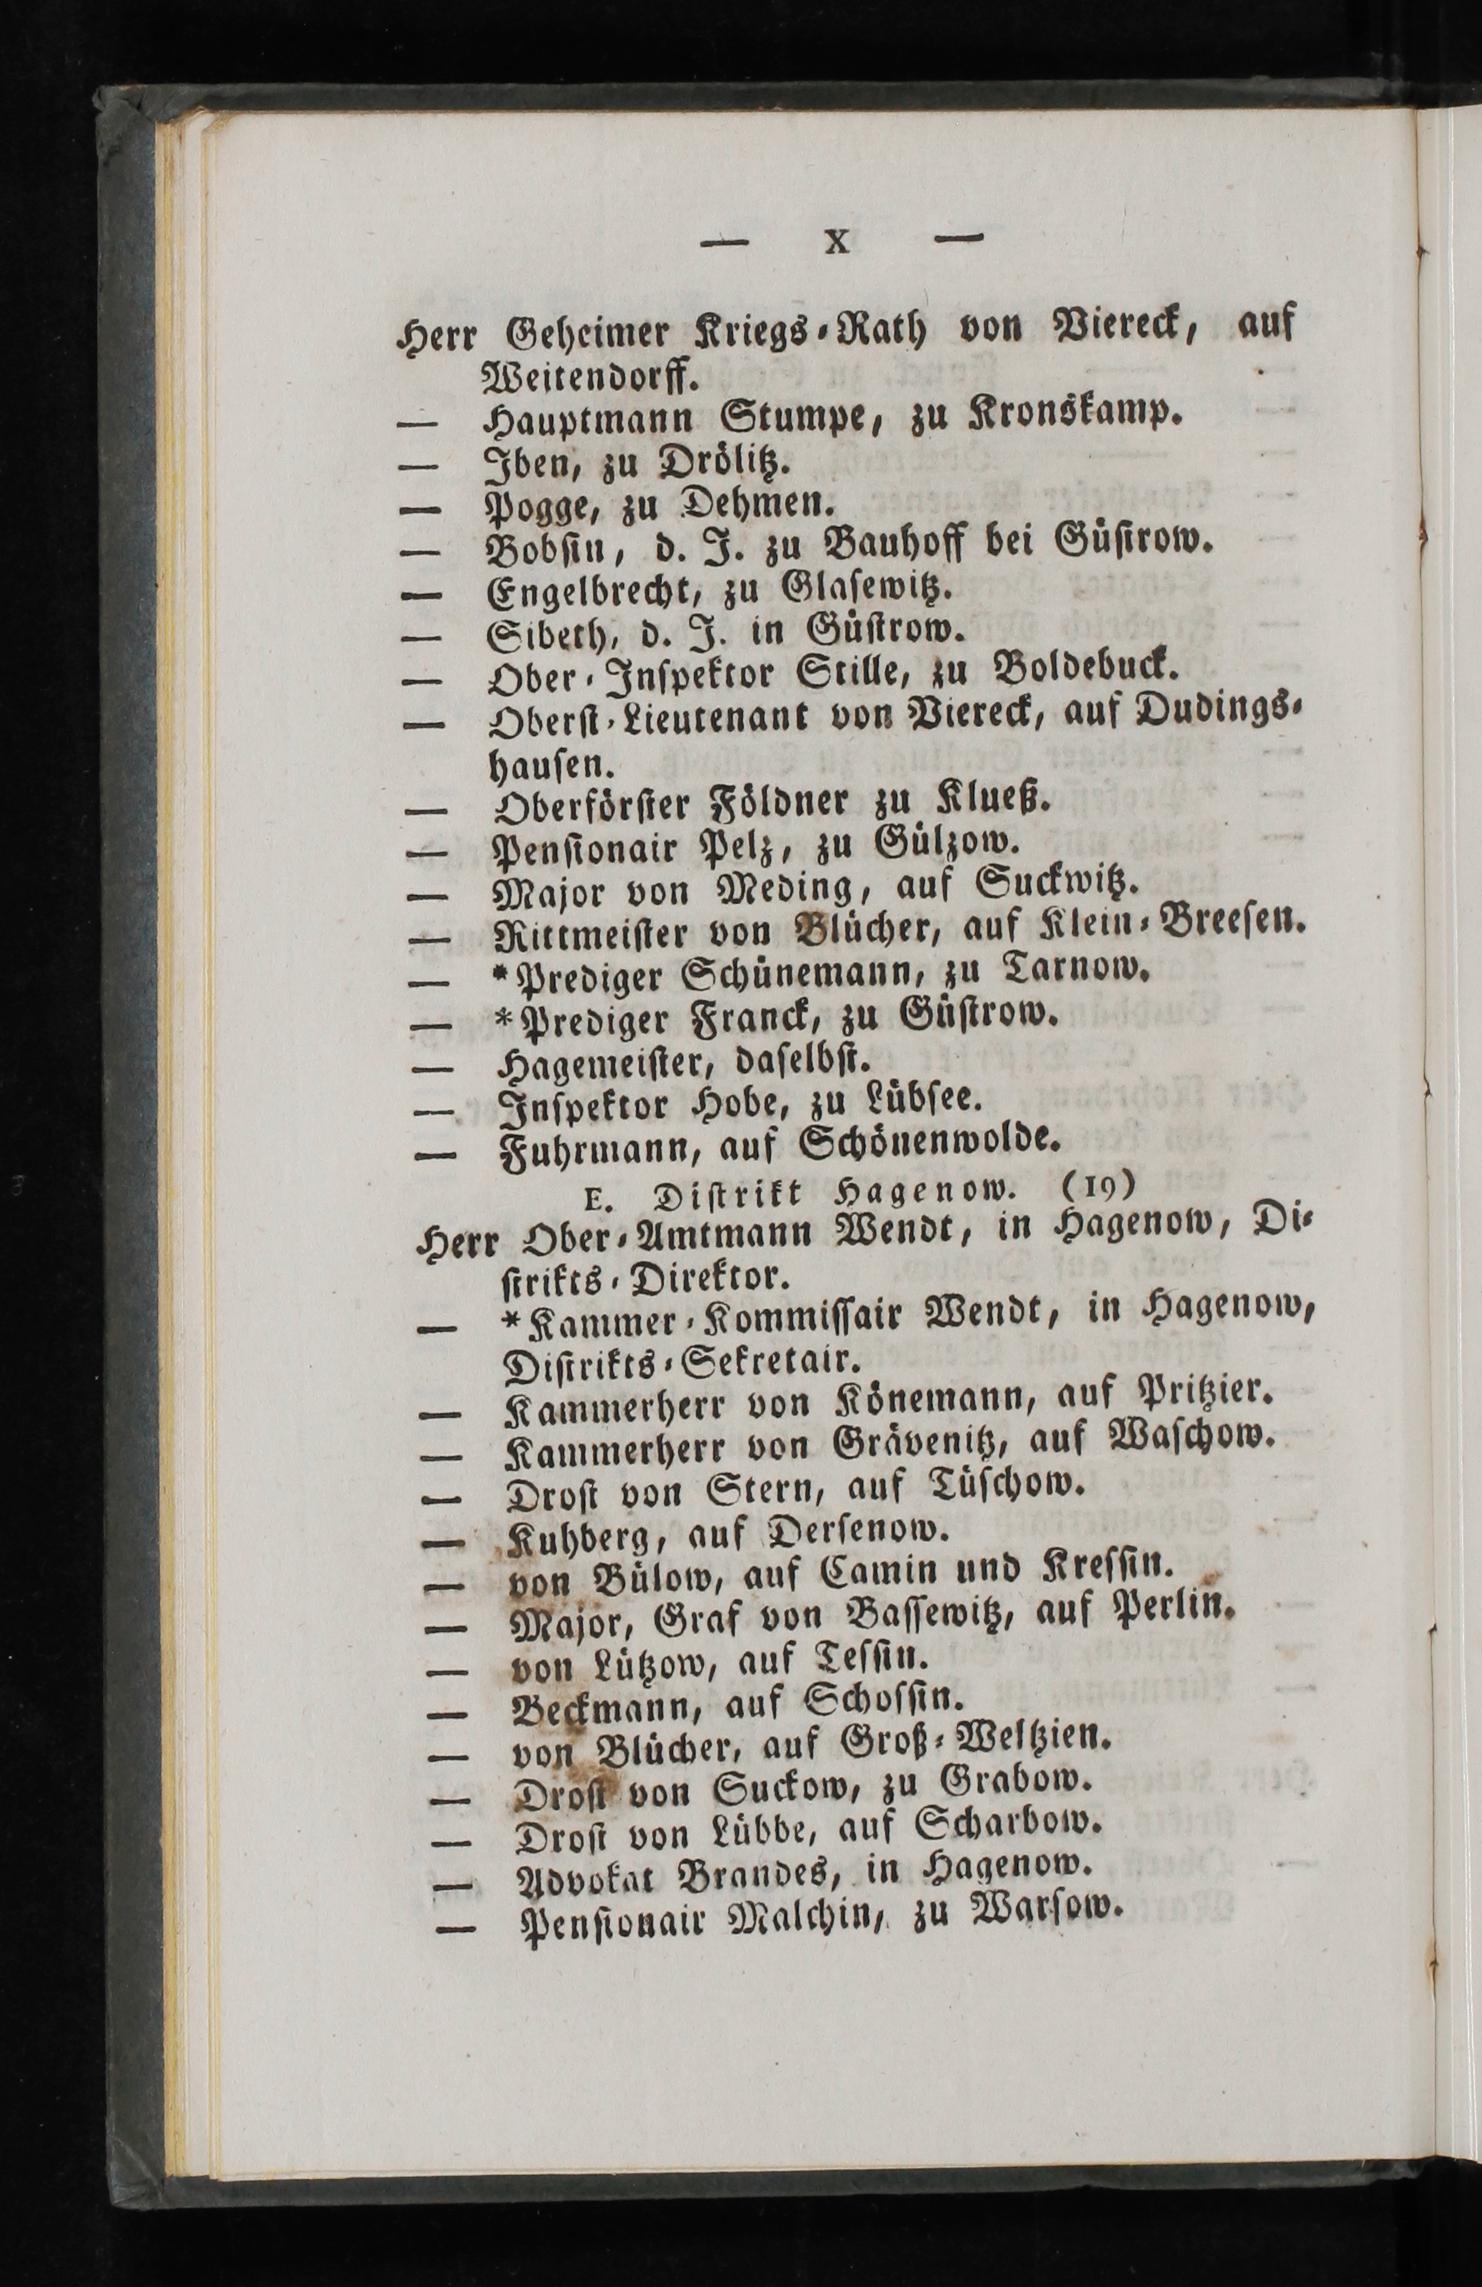 — X —
Herr Geheimer Kriegs-Rath von Viereck, auf
Weitendorff.
— Hauptmann Stumpe, zu Kronskamp.
— Iben, zu Drölitz.
— Pogge, zu Dehmen.
— Bobsin, d. J. zu Bauhoff bei Güstrow.
— Engelbrecht, zu Glasewitz.
— Sibeth, d. J. in Güstrow.
— Ober-Inspektor Stille, zu Boldebuck.
— Oberst-Lieutenant von Viereck, auf Dudings-
hausen.
— Oberförster Földner zu Klueß.
— Pensionair Pelz, zu Gülzow.
— Major von Meding, auf Suckwitz.
— Rittmeister von Blücher, auf Klein-Breesen.
— *Prediger Schünemann, zu Tarnow.
— *Prediger Franck, zu Güstrow.
— Hagemeister, daselbst.
— Inspektor Hobe, zu Lübsee.
— Fuhrmann, auf Schönenwolde.
E. Distrikt Hagenow. (19)
Herr Ober-Amtmann Wendt, in Hagenow, Di-
strikts-Direktor.
— *Kammer-Kommissair Wendt, in Hagenow,
Distrikts-Sekretair.
— Kammerherr von Könemann, auf Pritzier.
— Kammerherr von Grävenitz, auf Waschow.
— Drost von Stern, auf Tüschow.
— Kuhberg, auf Dersenow.
— von Bülow, auf Camin und Kressin.
— Major, Graf von Bassewitz, auf Perlin.
— von Lützow, auf Tessin.
— Beckmann, auf Schossin.
— von Blücher, auf Groß-Weltzien.
— Drost von Suckow, zu Grabow.
— Drost von Lübbe, auf Scharbow.
— Advokat Brandes, in Hagenow.
— Pensionair Malchin, zu Warsow.